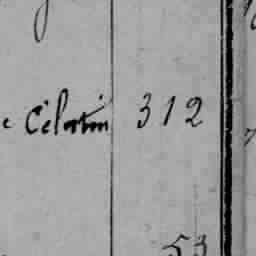 Célestin 312
53